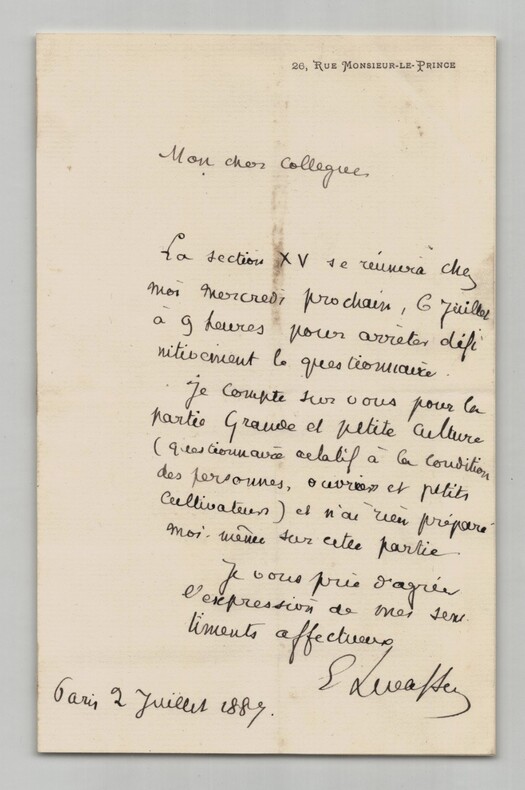 26, RUE MONSIEUR-LE-PRINCE
Mon cher collègue,
La section XV se réunira chez
moi mercredi prochain, 6 Juillet
à 9 heures pour arrêter défi
nitivement le questionnaire.
Je compte sur vous pour la
partie Grande et petite culture
(questionnaire relatif à la condition
des personnes, ouvriers et petits
cultivateurs) et n'ai rien préparé
moi-même sur cette partie
Je vous prie d'agréer
l'expression de mes sen
timents affectueux
E Levasseur
Paris 2 Juillet 1887.